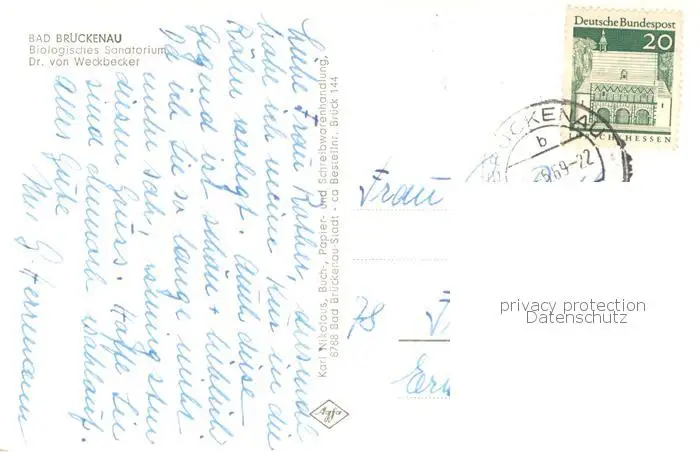 BAD BRÜCKENAU
Biologisches Sanatorium
Dr. von Weckbecker
Liebe Frau Rother, diesmal
habe ich meine Kur in die
Rhön verlegt. Auch diese
Gegend ist schön + lieblich
Da ich Sie so lange nicht
mehr sah, wenigsten
diesen Gruss. Hoffe Sie
sind dennoch wohlauf.
Alles Gute
Ihre G. Herrmann
Karl Nikolaus, Buch-, Papier- und Schreibwarenhandlung,
8788 Bad Brückenau-Stadt - ca Bestellnr. Brück 144
Agfa
Deutsche Bundespost
20
LORSCH/HESSEN
BRÜCKENAU
b
69-22
Frau
78
privacy protection
Datenschutz